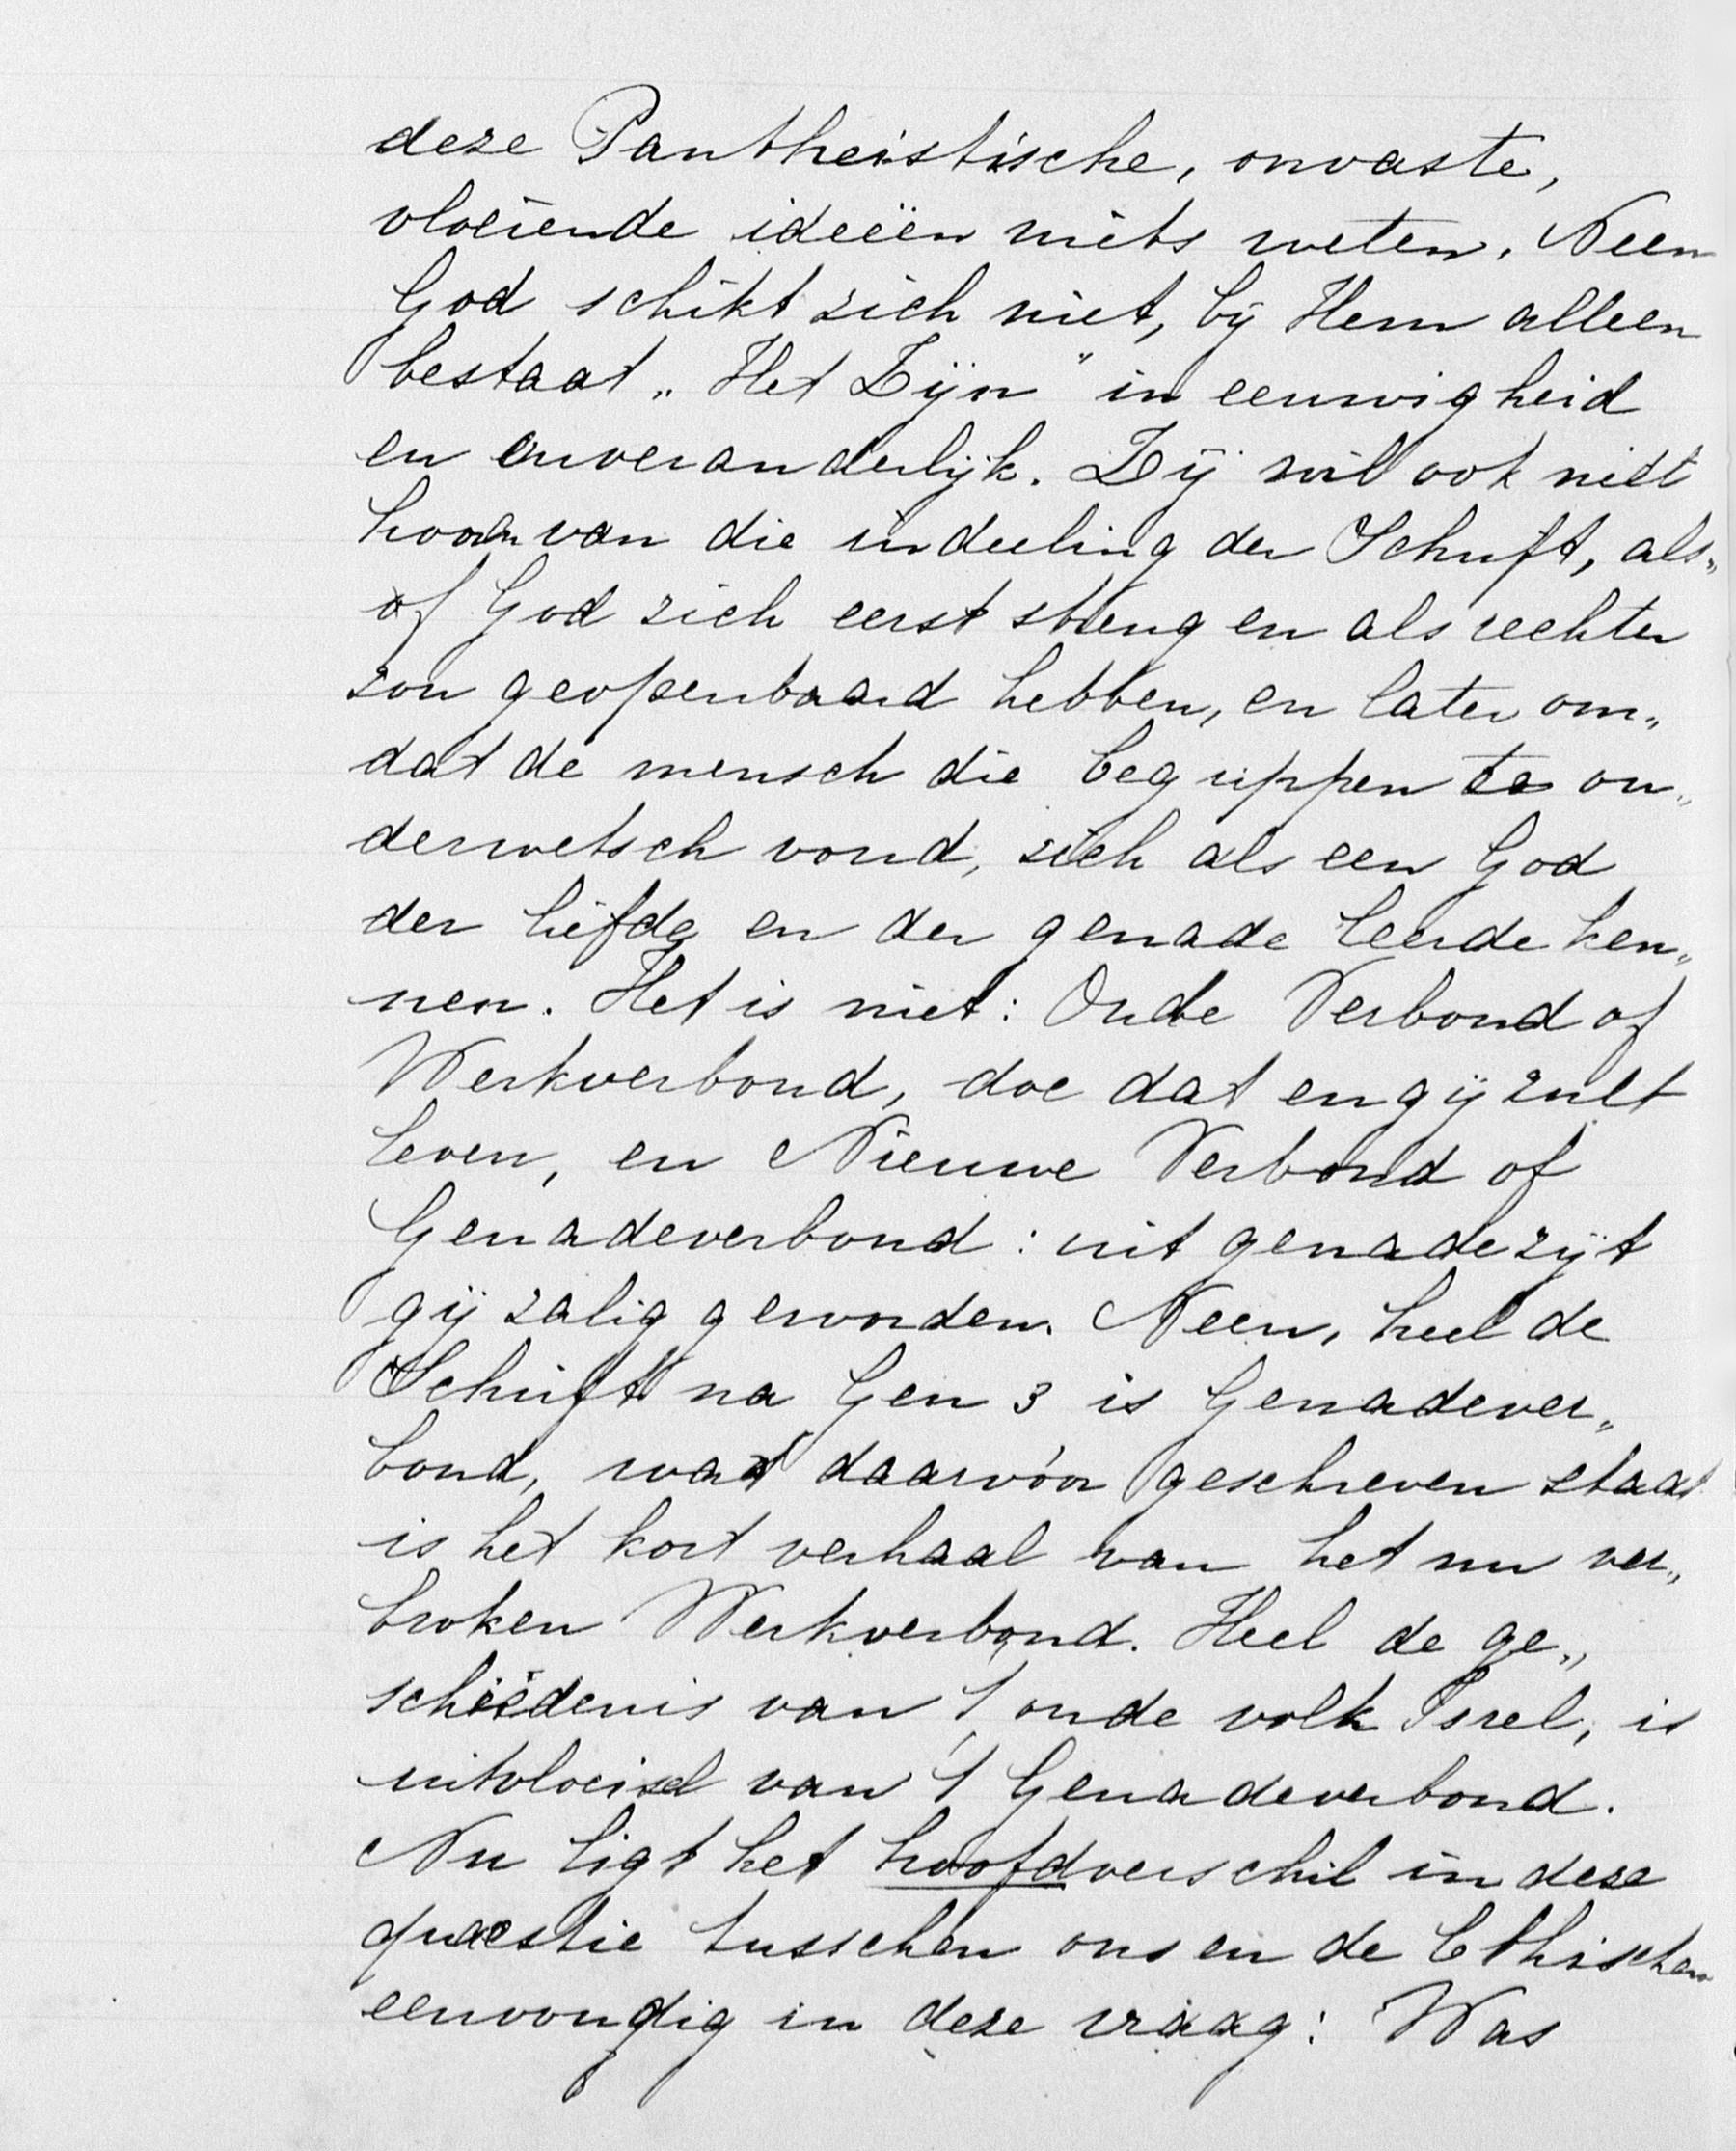 deze Pantheistische, onvaste,
vloeiende ideeën niets weten. Neen
God schikt zich niet, bij Hem alleen
bestaat „Het Zijn" in eeuwigheid
en onveranderlijk. Zij wil ook niet
hooren van die indeeling der Schrift, als„
of God zich eerst streng en als rechter
zou geopenbaard hebben, en later om„
dat de mensch die begrippen te ou„
derwetsch vond, zich als een God
der liefde en der genade leerde ken„
nen. Het is niet: Oude Verbond of
Werkverbond, doe dat en gij zult
leven, en Nieuwe Verbond of
Genadeverbond: uit genade zijt
gij zalig geworden. Neen, heel de
Schrift na Gen 3 is Genadever„
bond, wat daarvóor geschreven staat
is het kort verhaal van het nu ver„
broken Werkverbond. Heel de ge„
schiedenis van 't oude volk Isrel, is
uitvloeisel van 't Genadeverbond.
Nu ligt het hoofdverschil in deze
quaestie tusschen ons en de Ethischen
eenvoudig in deze vraag: Was